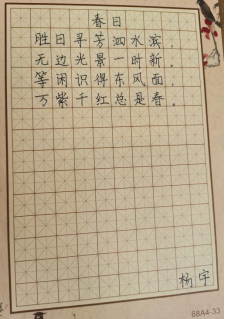 春日
胜日寻芳泗水滨，
无边光景一时新。
等闲识得东风面，
万紫千红总是春。
杨宇
68A4-33